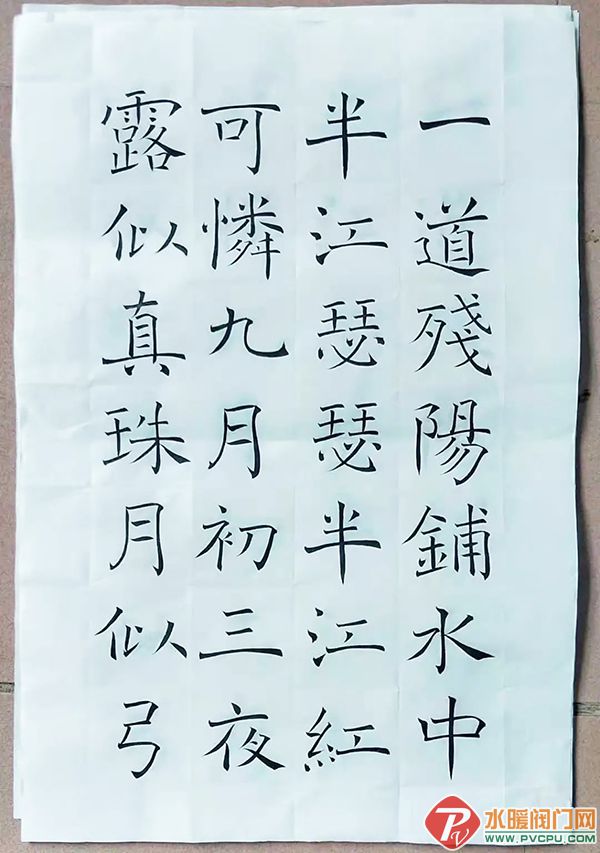 一道殘陽鋪水中
半江瑟瑟半江紅
可憐九月初三夜
露似真珠月似弓
水暖阀门网
WWW.PVCPU.COM